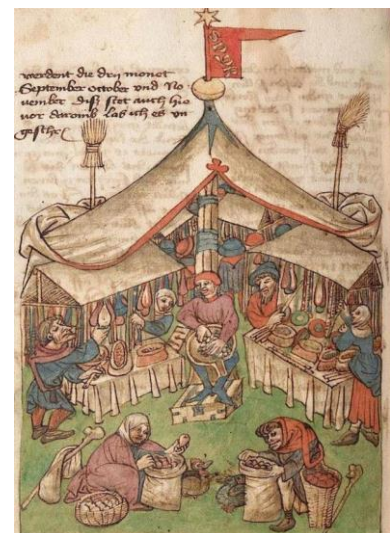 werdent die drij monet
September october vnd No
uember disß stet auch hie
vor daromb Las ich es vn